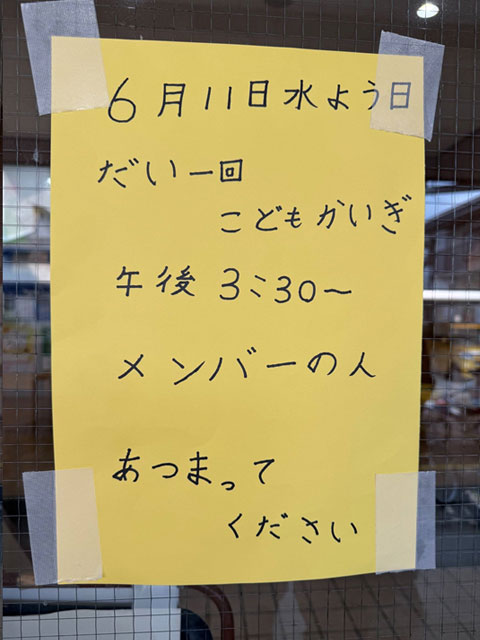 6月11日水よう日
だい一回
こどもかいぎ
午後 3:30〜
メンバーの人
あつまって
ください